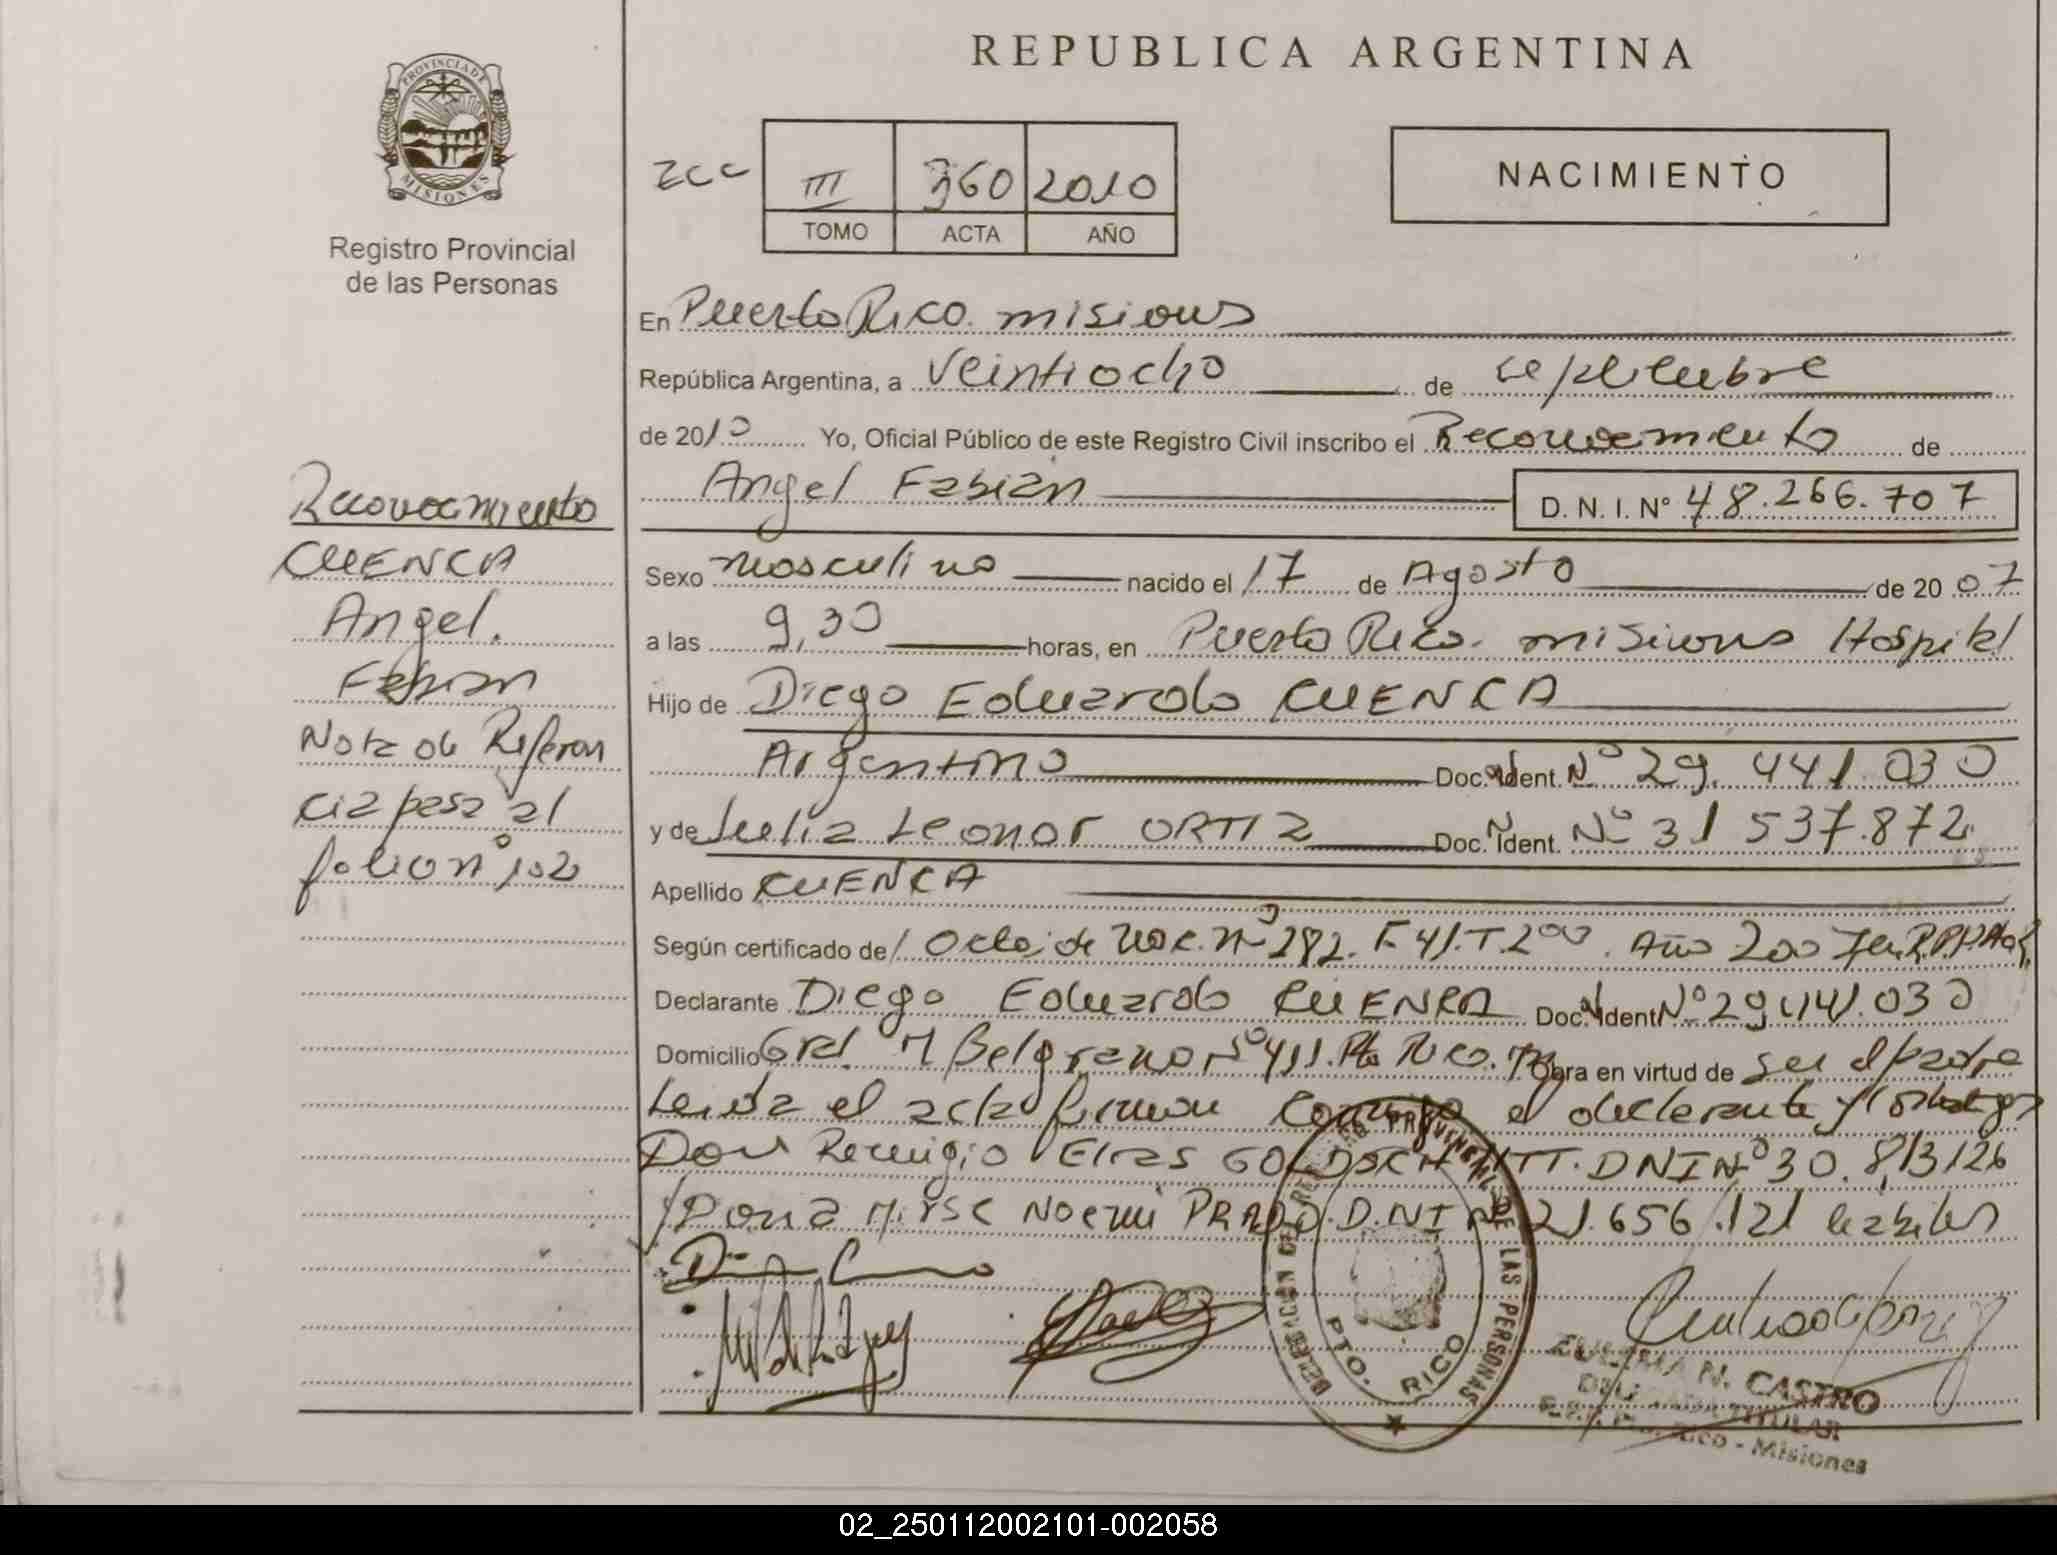 REPUBLICA ARGENTINA
PROVINCIA DE
MISIONES
Registro Provincial
de las Personas
III 360 2010
TOMO ACTA AÑO
NACIMIENTO
En Puerto Rico. misiones
República Argentina, a veintiocho de septiembre
de 2010 Yo, Oficial Público de este Registro Civil inscribo el Reconocimiento de
Angel Fabián D. N. I. Nº 48.266.707
Sexo masculino nacido el 17 de Agosto de 2007
a las 9,30 horas, en Puerto Rico. misiones Hospital
Hijo de Diego Eduardo CUENCA
Argentino Doc. Ident. Nº 29.441.030
y de Julia Leonor ORTIZ Doc. Ident. Nº 31 537.872
Apellido CUENCA
Según certificado de Acta de Nac. nº 282. F 41. T. 200. Año 2007
Declarante Diego Eduardo CUENCA Doc. Ident Nº 29.441.030
Domicilio Gral. M Belgrano Nº 411. Pto Rico. Obra en virtud de ser el padre
Leída el acta firman conmigo el declarante y testigos
Don Remigio Elias DNI Nº 30.813126
Doña Noemi PRADO. D.N.I 21.656.121 habiles
Reconocimiento
CUENCA
Angel.
Fabian
Nota de Referen
cia pasa al
folio nº 102
DELEGACION DE REGISTRO PROVINCIAL DE LAS PERSONAS
PTO. RICO
ZULEMA N. CASTRO
DELEGADA TITULAR
Pto. Rico - Misiones
02_250112002101-002058